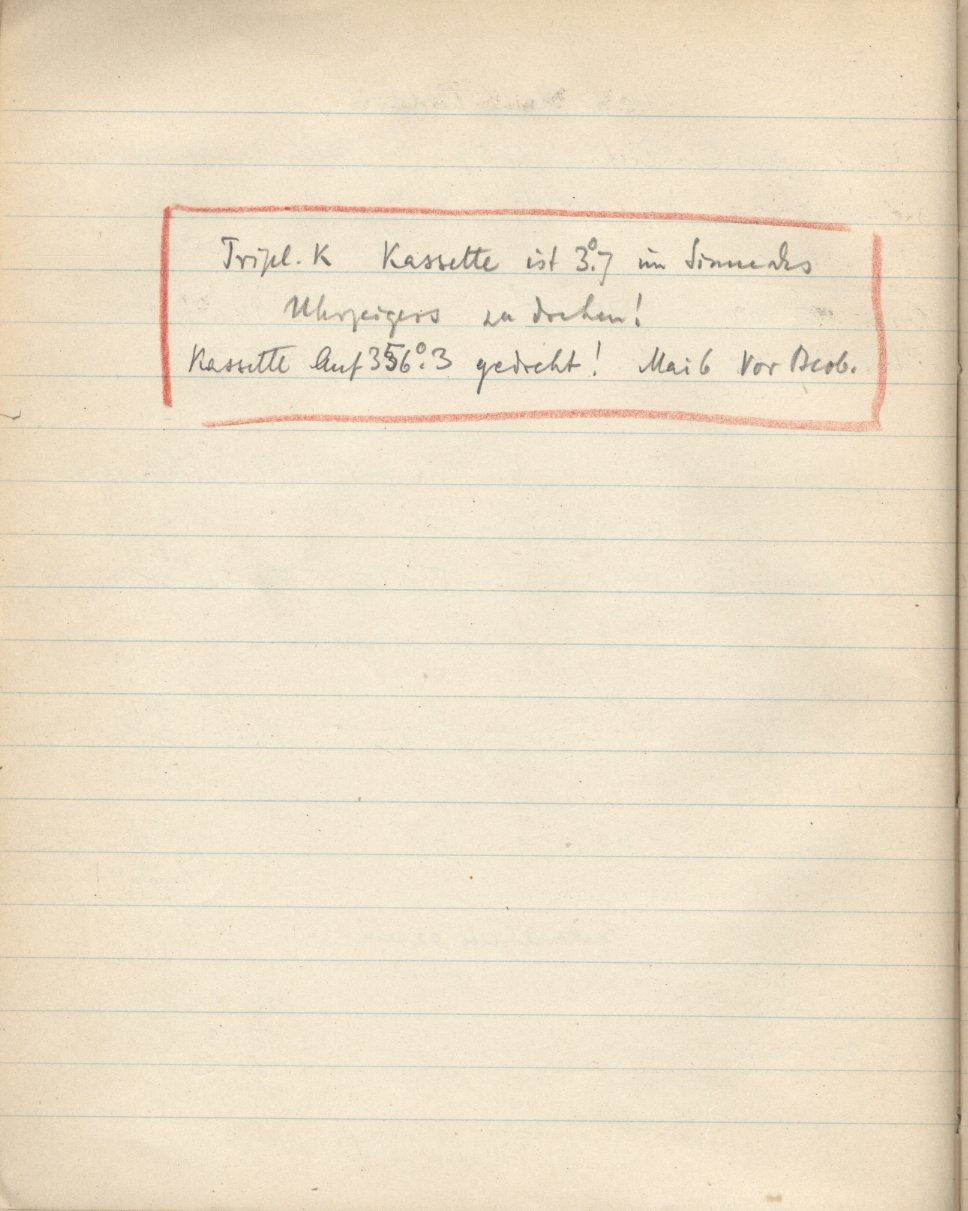 Tripl. K Kassette ist 3°.7 im Sinne des
Uhrzeigers zu drehen!
Kassette auf 356°.3 gedreht! Mai 6 vor Beob.